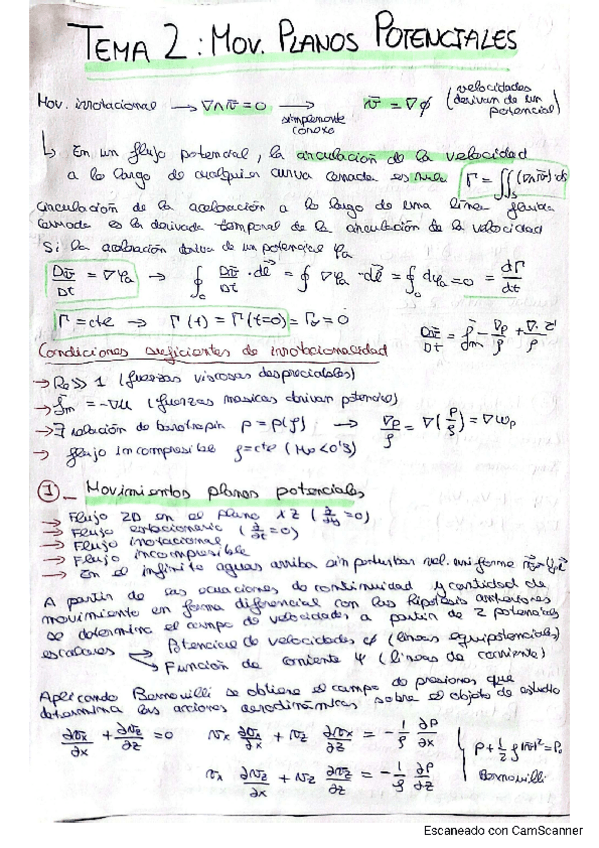 TEMA 2: MOV. PLANOS POTENCIALES
Mov. irrotacional → ∇∧v̄ = 0 → simplemente conexo v̄ = ∇ϕ (velocidades derivan de un potencial)
↳ En un flujo potencial, la circulación de la velocidad
a lo largo de cualquier curva cerrada es nula Γ = ∬s (∇∧v̄) ds
circulación de la aceleración a lo largo de una línea fluida
cerrada es la derivada temporal de la circulación de la velocidad
Si la aceleración deriva de un potencial φa
Dv̄/Dt = ∇φa → ∮c Dv̄/Dt · dl = ∮ ∇φa · dl = ∮c dφa = 0 = dΓ/dt
Γ = cte → Γ(t) = Γ(t=0) = Γ∞ = 0
Condiciones suficientes de irrotacionalidad
→ Re >> 1 (fuerzas viscosas despreciables)
→ = -∇U (fuerzas masicas derivan potencial)
→ ∃ relación de barotropía ρ = ρ(p) → ∇p/ρ = ∇(p/ρ) = ∇ωp
→ flujo incompresible ρ = cte
① - Movimientos planos potenciales
→ Flujo 2D en el plano XZ
→ Flujo estacionario (∂/∂t = 0)
→ Flujo irrotacional
→ Flujo incompresible
→ En el infinito aguas arriba sin perturbar vel. uniforme
A partir de las ecuaciones de continuidad y cantidad de
movimiento en forma diferencial con las hipótesis anteriores
se determina el campo de velocidades a partir de 2 potenciales
escalares → Potencial de velocidades ϕ (líneas equipotenciales)
→ Función de corriente ψ (líneas de corriente)
Aplicando Bernouilli se obtiene el campo de presiones que
determina las acciones aerodinámicas sobre el objeto de estudio
∂vx/∂x + ∂vz/∂z = 0 vx ∂vx/∂x + vz ∂vx/∂z = - 1/ρ ∂P/∂x
vx ∂vz/∂x + vz ∂vz/∂z = - 1/ρ ∂P/∂z
P + 1/2 ρ|v|² = P₀
Bernouilli
Escaneado con CamScanner